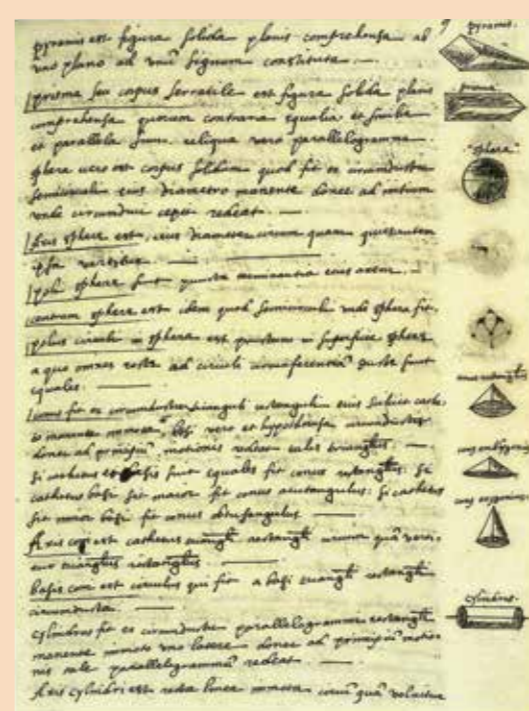 9
pyramis est figura solida planis comprehensa ab
uno plano ad unũ signum constituta
prisma seu corpus serratile est figura solida planis
comprehensa quorum contraria equalia et similia
et parallela sunt reliqua vero parallelogramma
sphera vero est corpus solidum quod fit ex circumductu
semicirculi eius diametro manente donec ad initium
unde circumduci cepit redeat.
Axis sphere est, eius diameter circum quam quiescentem
ipsa vertitur
poli sphere sunt puncta terminantia eius axem
centrum sphere est idem quod semicirculi unde sphera fit.
polus circuli in sphera est punctum in superficie sphere
a quo omnes recte ad circuli circumferentiã ducte sunt
equales.
conus fit ex circumductu trianguli rectanguli eius scilicet cathe-
to manente immoto, basi vero et hypothenusa circumductis
donec ad principiũ motionis redeat talis trianglus.
Si cathetus et basis sunt equales fit conus rectanglus: si
cathetus basi sit maior fit conus acutangulus: si cathetus
sit minor basi fit conus obtusangulus
Axis coni est cathetus trianglĩ rectanglĩ circum quã verti-
tur trianglus rectanglus.
Basis coni est circulus qui fit a basi trianglĩ rectanglĩ
circumducta.
Cylindrus fit ex circumductu parallelogrammi rectanglĩ
manente immoto uno latere donec ad principiũ motio-
nis tale parallelogrammũ redeat
Axis cylindri est recta linea immota circũ quã volvitur
pyramis.
prisma
sphera
conus rectanglus
conus amblygonius
conus oxygonius
cylindrus.